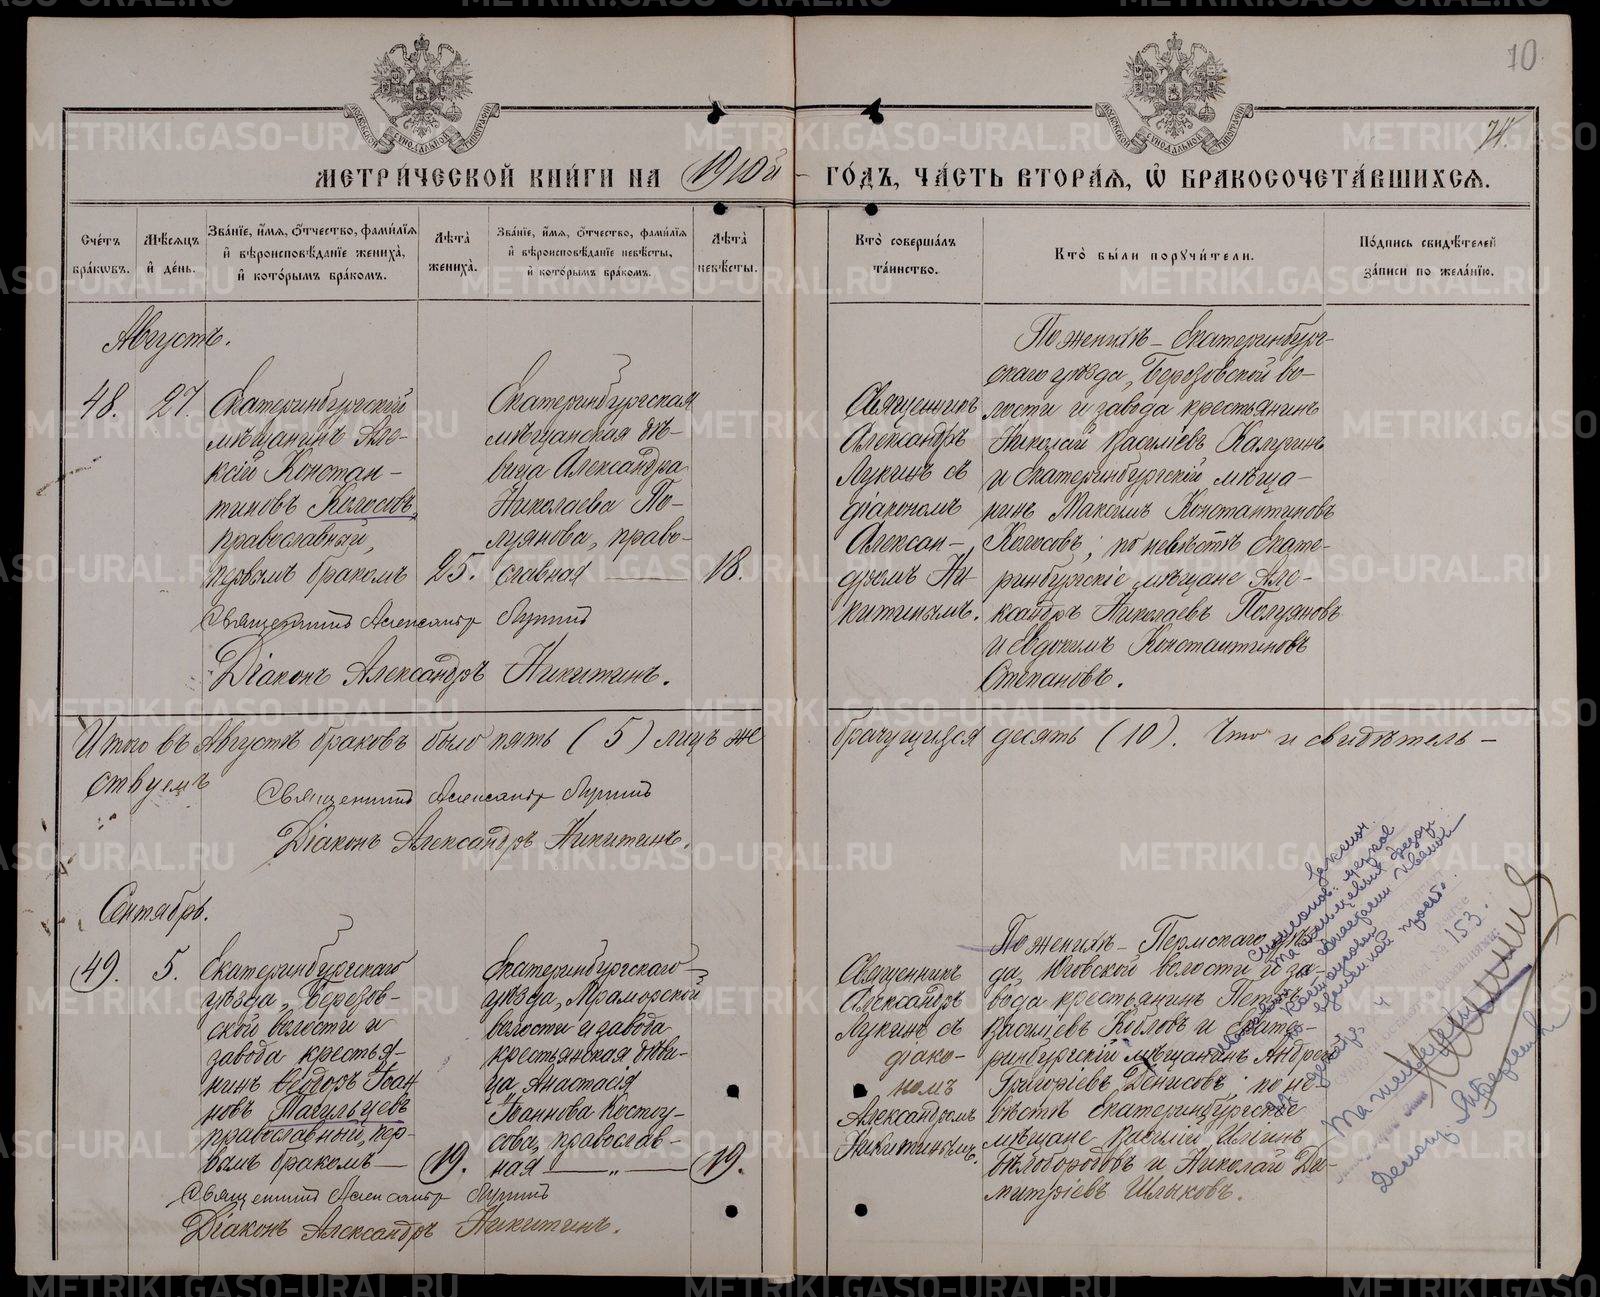 10
74.
МЕТРИ́ЧЕСКОЙ КНИ́ГИ НА 1910й ГО́ДЪ, ЧА́СТЬ ВТОРА́Я, Ѡ БРАКОСОЧЕТА́ВШИХСЯ.
Сче́тъ бра́кѡвъ.
Мѣ́сяцъ и де́нь.
Зва́нїе, и́мя, о́тчество, фами́лїя и вѣроисповѣ́данїе жениха̀, и кото́рымъ бра́комъ.
Лѣта̀ жениха̀.
Зва́нїе, и́мя, о́тчество, фами́лїя и вѣроисповѣ́данїе невѣ́сты, и кото́рымъ бра́комъ.
Лѣта̀ невѣ́сты.
Кто̀ соверша́лъ та́инство.
Кто̀ бы́ли поручи́тели.
По́дпись свидѣ́телей за́писи по жела́нїю.
Августъ.
48.
27.
Екатеринбургскій
мѣщанинъ Але-
ксій Констан-
тиновъ Колосовъ,
православный,
первымъ бракомъ
25.
Екатеринбургская
мѣщанская дѣ-
вица Александра
Николаева По-
луянова, право-
славная
18.
Священникъ
Александръ
Лукинъ съ
діакономъ
Алексан-
дромъ Ни-
китинымъ.
По женихѣ - Екатеринбург-
скаго уѣзда, Березовской во-
лости и завода крестьянинъ
Николай Васильевъ Калугинъ
и Екатеринбургскій мѣща-
нинъ Максимъ Константиновъ
Колосовъ; по невѣстѣ Екате-
ринбургскіе мѣщане Але-
ксандръ Николаевъ Полуяновъ
и Евдокимъ Константиновъ
Степановъ.
Священникъ Александръ Лукинъ
Діаконъ Александръ Никитинъ.
Итого въ Августѣ браковъ было пять (5) лицъ же брачущихся десять (10). Что и свидѣтель-
ствуемъ
Священникъ Александръ Лукинъ
Діаконъ Александръ Никитинъ.
Сентябрь.
49.
5.
Екатеринбургскаго
уѣзда, Березов-
ской волости и
завода крестья-
нинъ Ѳеодоръ Іоан-
новъ Пагульцевъ
православный, пер-
вымъ бракомъ
19.
Екатеринбургскаго
уѣзда, Мраморской
волости и завода
крестьянская дѣви-
ца Анастасія
Іоаннова Костоу-
сова, православ-
ная
19.
Священникъ
Александръ
Лукинъ съ
діако-
номъ
Александромъ
Никитинымъ.
По женихѣ - Пермскаго уѣз-
да, Юговской волости и за-
вода крестьянинъ Петръ
Васильевъ Кобловъ и Екате-
ринбургскій мѣщанинъ Андрей
Григоріевъ Денисовъ; по не-
вѣстѣ Екатеринбургскіе
мѣщане Василій Ильинъ
Бѣлобородовъ и Николай Ди-
митріевъ Шлыковъ.
Священникъ Александръ Лукинъ
Діаконъ Александръ Никитинъ.
№ 153.
METRIKI.GASO-URAL.RU